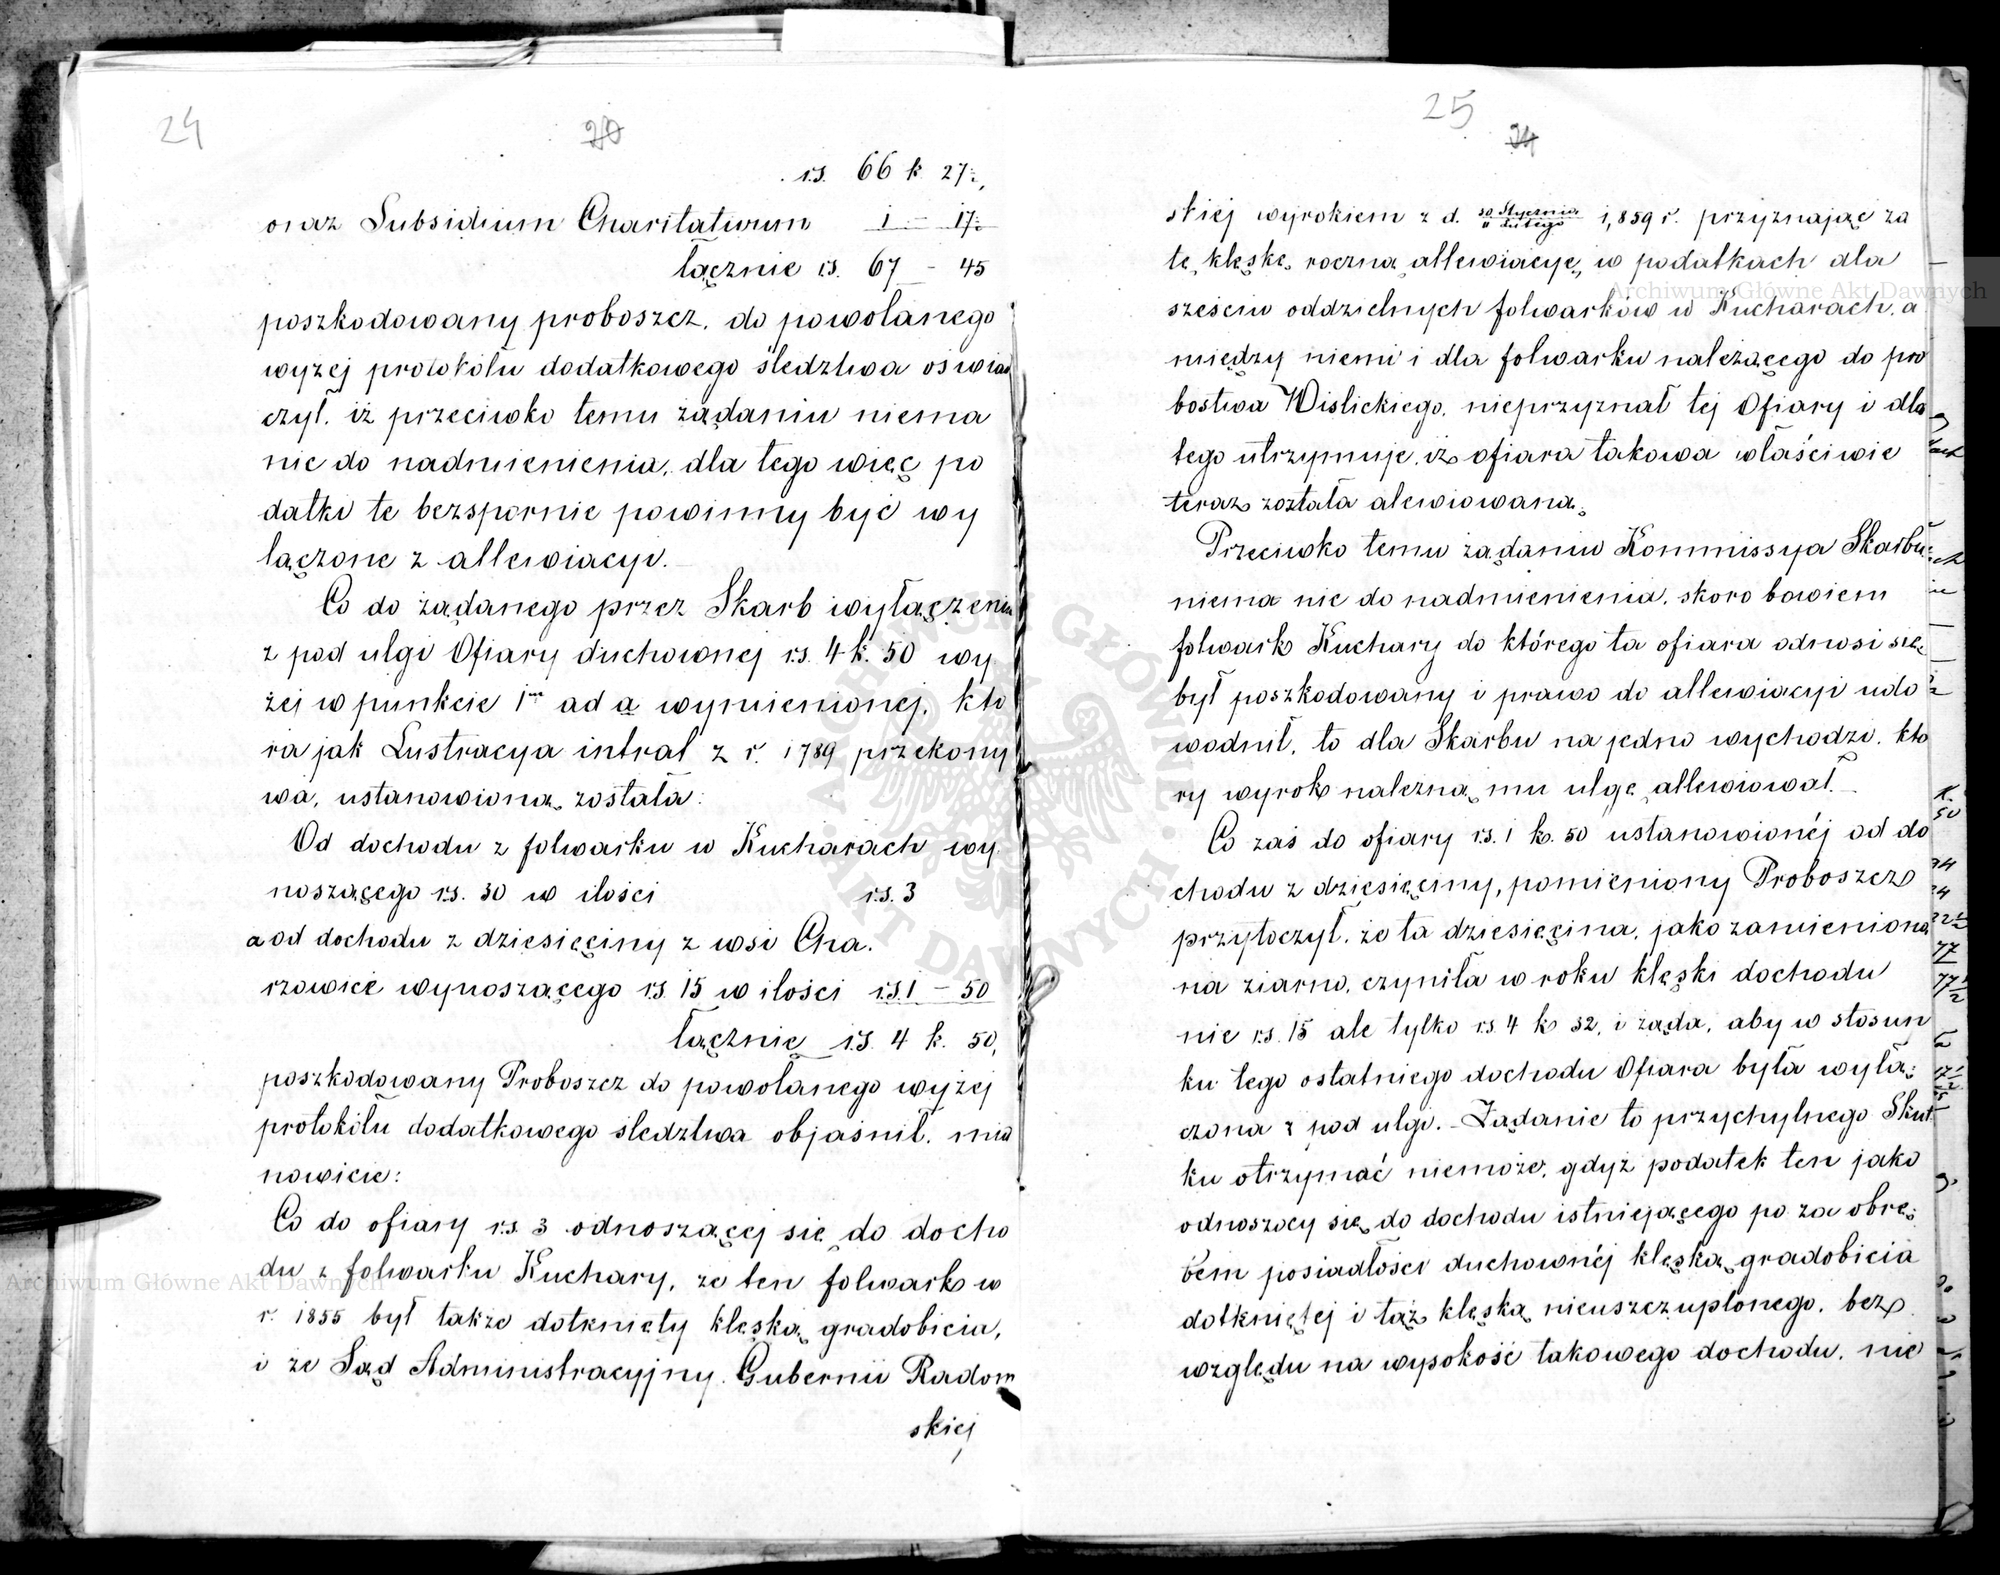 24
20
rs. 66 k 27½
oraz Subsidium Charitativum 1 – 17½
łącznie rs. 67 – 45
poszkodowany proboszcz, do powołanego
wyżej protokółu dodatkowego śledztwa oświad
czył, iż przeciwko temu żądaniu niema
nic do nadmienienia, dla tego więc po
datki te bezspornie powinny być wy
łączone z allewiacyi.
Co do żądanego przez Skarb wyłączenia
z pod ulgi Ofiary duchownej rs. 4 k. 50 wy
żej w punkcie 1m ad a wymienionej, któ
ra jak Lustracya intrat z r. 1789 przekony
wa, ustanowiona została:
Od dochodu z folwarku w Kucharach wy
noszącego rs. 30 w ilości rs. 3
a od dochodu z dziesięciny z wsi Cha.
rzowice wynoszącego rs. 15 w ilości rs. 1 – 50
łącznie rs. 4 k. 50,
poszkodowany Proboszcz do powołanego wyżej
protokółu dodatkowego śledztwa objaśnił, mia
nowicie:
Co do ofiary rs. 3 odnoszącej się do docho
du z folwarku Kuchary, że ten folwark w
r. 1855 był także dotknięty klęską gradobicia,
i że Sąd Administracyjny Gubernii Radom
skiej
25
24
skiej wyrokiem z d. 30 Stycznia / 11 Lutego 1,859 r. przyznając za
tę klęskę roczną allewiacyę w podatkach dla
sześciu oddzielnych folwarków w Kucharach, a
między niemi i dla folwarku należącego do pro
bostwa Wislickiego, nieprzyznał tej Ofiary i dla
tego utrzymuje, iż ofiara takowa właściwie
teraz została alewiowaną.
Przeciwko temu żądaniu Kommissya Skarbu
niema nic do nadmienienia, skoro bowiem
folwark Kuchary do którego ta ofiara odnosi się
był poszkodowany i prawo do allewiacyi udo
wodnił, to dla Skarbu na jedno wychodzi, któ
ry wyrok należną mu ulgę allewiował. –
Co zaś do ofiary rs. 1 k. 50 ustanowionéj od do
chodu z dziesięciny, pomieniony Proboszcz
przytoczył, że ta dziesięcina, jako zamieniona
na ziarno, czyniła w roku klęski dochodu
nie rs. 15 ale tylko rs. 4 k 32, i żąda, aby w stosun
ku tego ostatniego dochodu Ofiara była wyłą:
czona z pod ulgi. – Żądanie to przychylnego Skut
ku otrzymać niemoże, gdyż podatek ten jako
odnoszący się do dochodu istniejącego po za obrę:
bem posiadłości duchownéj klęską gradobicia
dotkniętej i taż klęską nieuszczuplonego, bez
względu na wysokość takowego dochodu, nie
Archiwum Główne Akt Dawnych
Archiwum Główne Akt Dawnych
ARCHIWUM GŁÓWNE AKT DAWNYCH